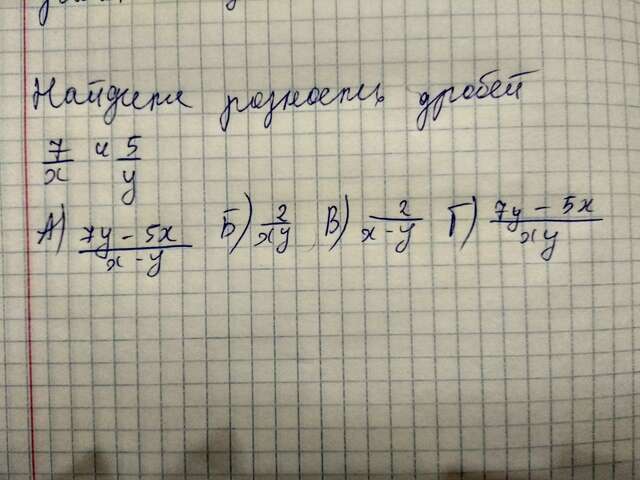 Найдите разность дробей
7/x и 5/y
А) (7y - 5x)/(x - y) Б) 2/(xy) В) 2/(x - y) Г) (7y - 5x)/(xy)